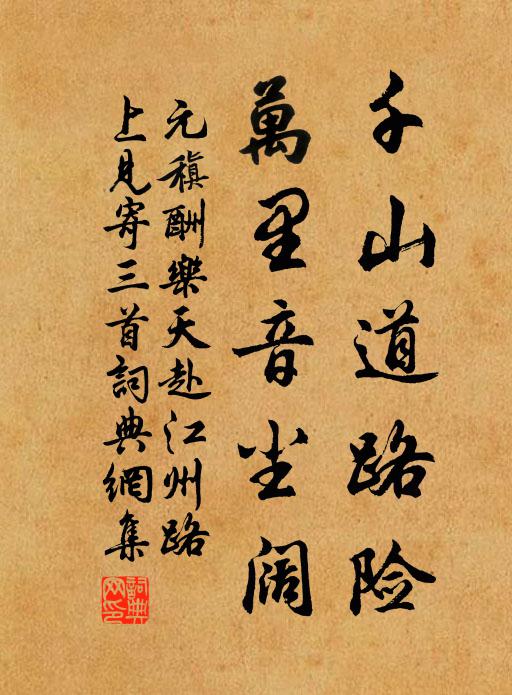 千山道路险
萬里音尘阔
元稹酬樂天赴江州路
上見寄三首詞典網集
詞典
网印